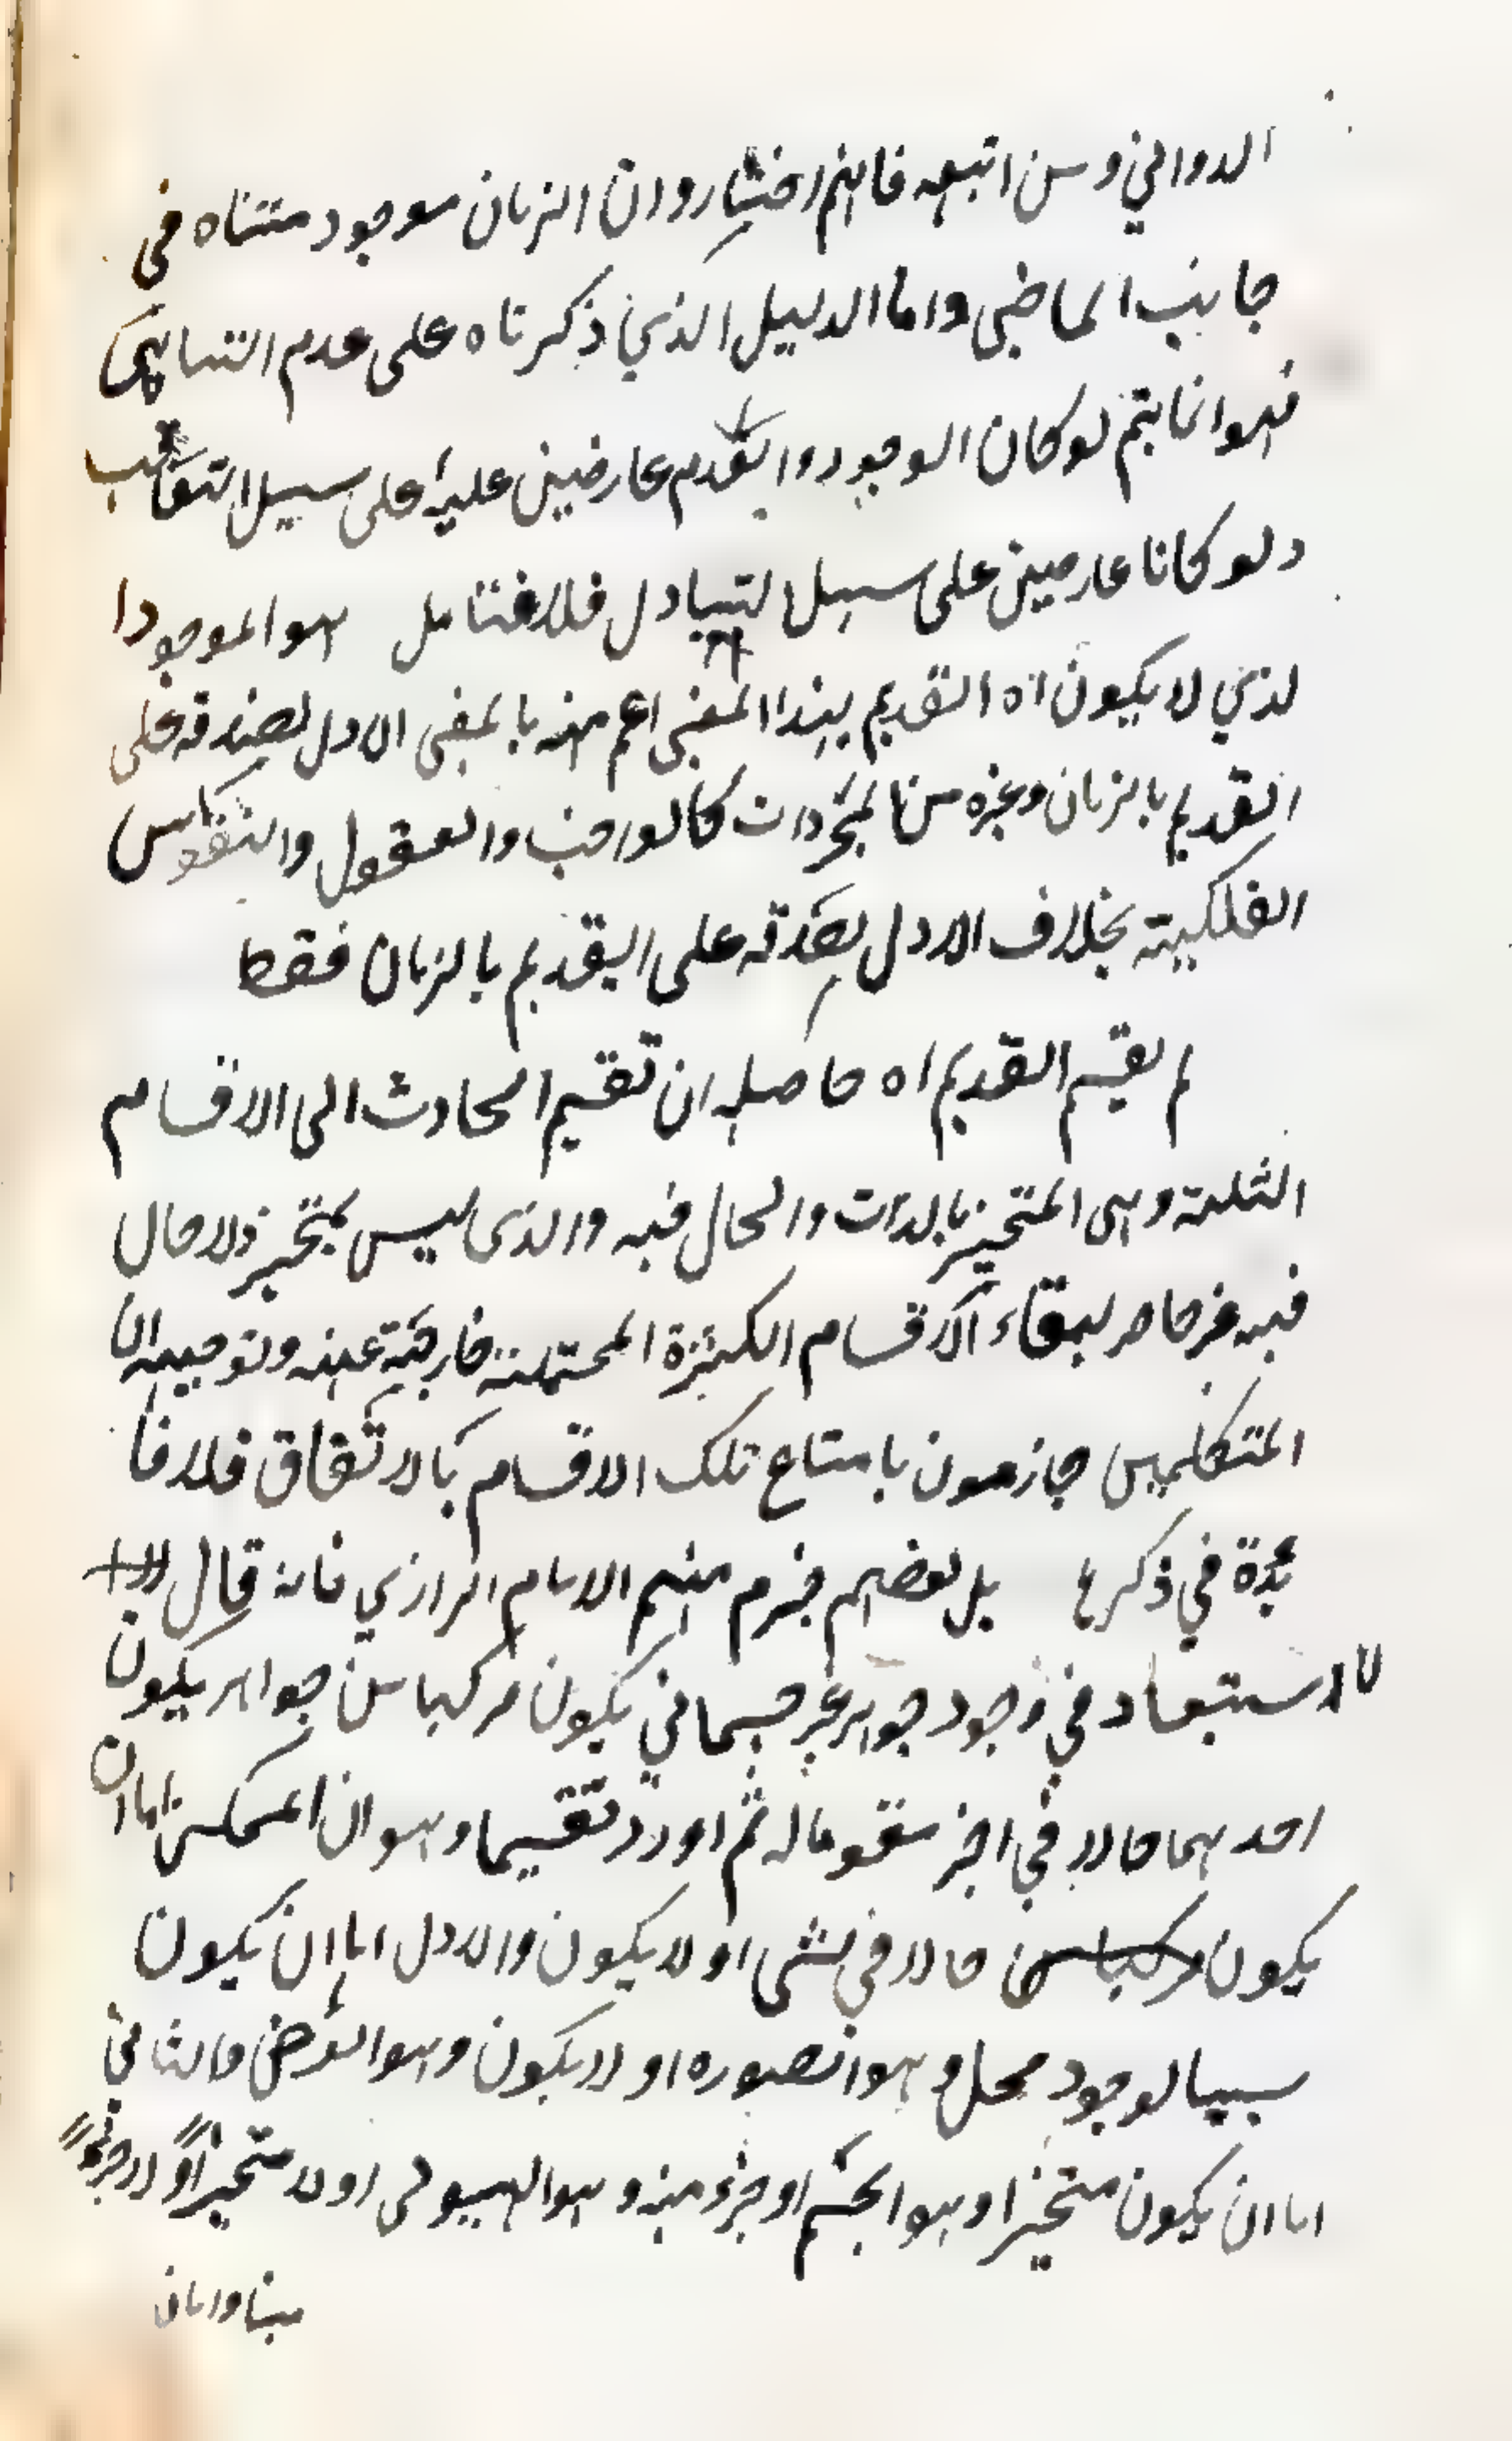 الدواني ومن اتبعه فانهم اختاروا ان الزمان موجود متناه في
جانب الماضي واما الدليل الذي ذكرناه على عدم التناهي
فهو انما يتم لو كان الوجود والتقدم عارضين عليه على سبيل التعاقب
ولو كانا عارضين على سبيل التبادل فلا فتامل هو الموجود ا
لذي لا يكون اه القديم بهذا المعنى اعم منه بالمعنى الاول لصدقه على
القديم بالزمان وغيره من المجردات كالواجب والعقول والنفوس
الفلكية بخلاف الاول لصدقه على القديم بالزمان فقط
لم يقسم القديم اه حاصله ان تقسيم الحادث الى الاقسام
الثلثة وهى المتحيز بالذات والحال فيه والذى ليس بمتحيز ولا حال
فيه غير حاصر لبقاء الاقسام الكثيرة المحتملة خارجة عنه وتوجيهه ان
المتكلمين جازمون بامتناع تلك الاقسام بالاتفاق فلا فا
ئدة في ذكرها بل بعضهم جزم منهم الامام الرازي فانه قال
لا استبعاد في وجود جوهر غير جسماني يكون مركبا من جواهر يكون
احدهما حالا في اخر مقوما له ثم اورد تقسيما وهو ان الممكن اما ان
يكون مركبا من حالا في شى او لا يكون والاول اما ان يكون
سببا لوجود محل وهو الصوره او لا يكون وهو العرض والثاني
اما ان يكون متحيزا وهو الجسم او جزء منه وهو الهيولى او لا متحيزا ولا جزءا